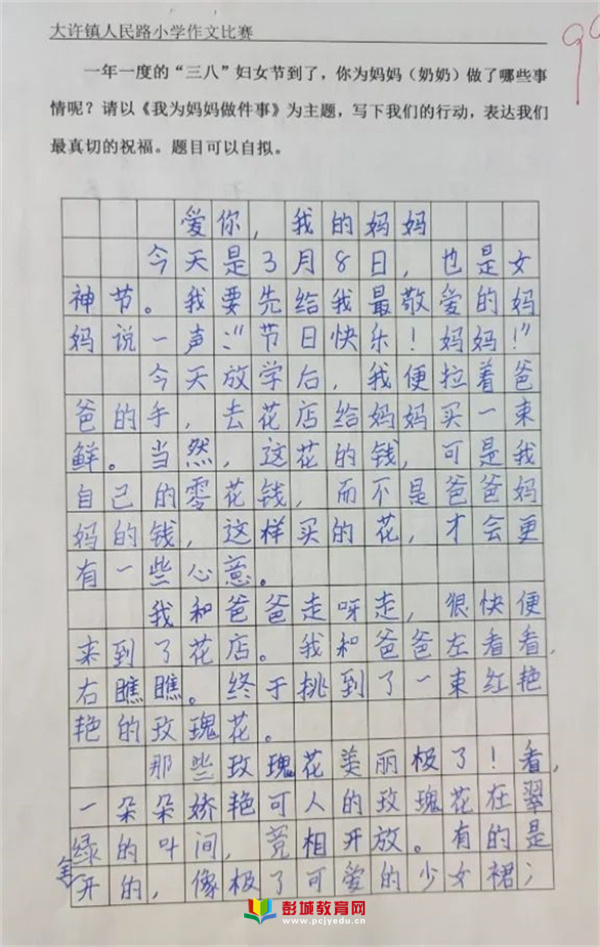 大许镇人民路小学作文比赛
一年一度的“三八”妇女节到了，你为妈妈（奶奶）做了哪些事
情呢？请以《我为妈妈做件事》为主题，写下我们的行动，表达我们
最真切的祝福。题目可以自拟。
爱你，我的妈妈
今天是3月8日，也是女
神节。我要先给我最敬爱的妈
妈说一声：“节日快乐！妈妈！”
今天放学后，我便拉着爸
爸的手，去花店给妈妈买一束
鲜。当然，这花的钱，可是我
自己的零花钱，而不是爸爸妈
妈的钱，这样买的花，才会更
有一些心意。
我和爸爸走呀走，很快便
来到了花店。我和爸爸左看看，
右瞧瞧。终于挑到了一束红艳
艳的玫瑰花。
那些玫瑰花美丽极了！看，
一朵朵娇艳可人的玫瑰花在翠
绿的叶间，竞相开放。有的是
全开的，像极了可爱的少女裙；
彭城教育网
www.pcjyedu.cn